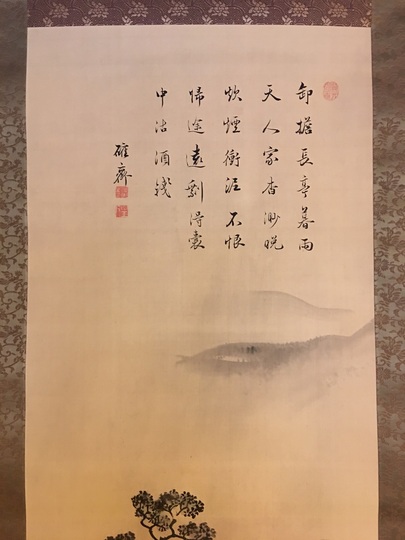 卸擔長亭暮雨
天人家杳渺晩
炊煙衝泥不恨
帰途遠剩得囊
中沽酒錢
齋